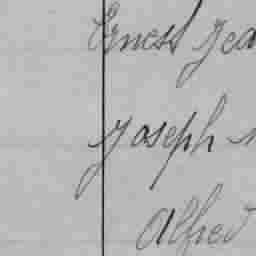 Ernest Jea
Joseph
Alfred